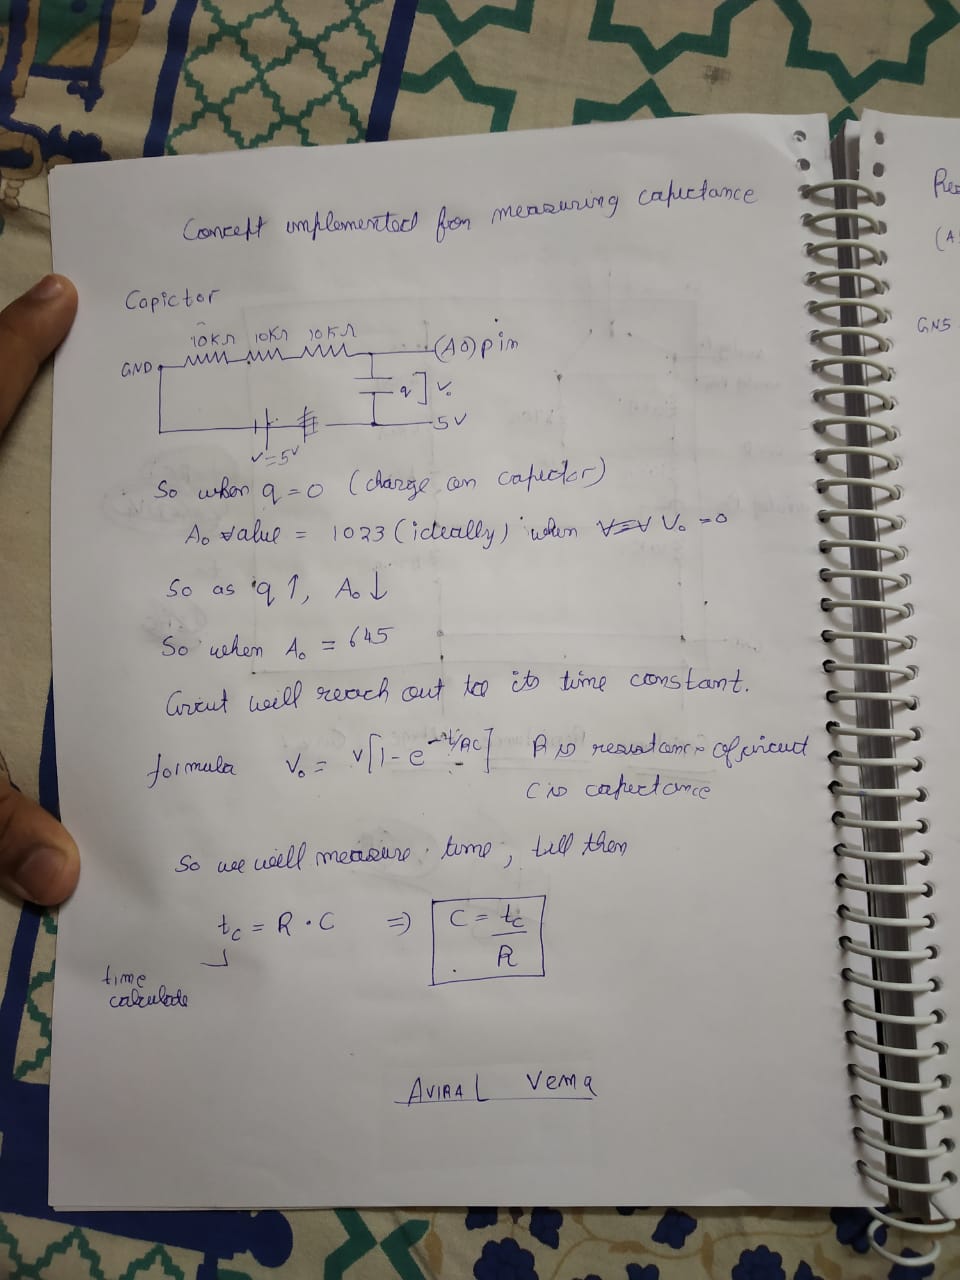 Concept implemented for measuring capectance
Capictor
10KΩ 10KΩ 10KΩ
GND
(A0) pin
q ] V₀
5V
V=5V
So when q = 0 (charge on capector)
A₀ value = 1023 (ideally) when V₀ = 0
So as q ↑, A₀ ↓
So when A₀ = 645
Circut will reach out to its time constant.
formula V₀ = V[1 - e^-t/RC] R is resistance of circuit
C is capectance
So we will measure time, till then
tc = R · C ⇒ C = tc/R
time
calculate
AVIRAL Vema
Res
(A
GNS